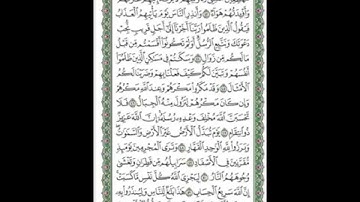 مُهْطِعِينَ مُقْنِعِي رُءُوسِهِمْ لَا يَرْتَدُّ إِلَيْهِمْ طَرْفُهُمْ
وَأَفْـِٔدَتُهُمْ هَوَآءٌ ٤٣ وَأَنذِرِ ٱلنَّاسَ يَوْمَ يَأْتِيهِمُ ٱلْعَذَابُ
فَيَقُولُ ٱلَّذِينَ ظَلَمُوا۟ رَبَّنَآ أَخِّرْنَآ إِلَىٰٓ أَجَلٍ قَرِيبٍ نُّجِبْ
دَعْوَتَكَ وَنَتَّبِعِ ٱلرُّسُلَ أَوَلَمْ تَكُونُوٓا۟ أَقْسَمْتُم مِّن قَبْلُ
مَا لَكُم مِّن زَوَالٍ ٤٤ وَسَكَنتُمْ فِي مَسَٰكِنِ ٱلَّذِينَ ظَلَمُوٓا۟
أَنفُسَهُمْ وَتَبَيَّنَ لَكُمْ كَيْفَ فَعَلْنَا بِهِمْ وَضَرَبْنَا لَكُمُ
ٱلْأَمْثَالَ ٤٥ وَقَدْ مَكَرُوا۟ مَكْرَهُمْ وَعِندَ ٱللَّهِ مَكْرُهُمْ
وَإِن كَانَ مَكْرُهُمْ لِتَزُولَ مِنْهُ ٱلْجِبَالُ ٤٦ فَلَا
تَحْسَبَنَّ ٱللَّهَ مُخْلِفَ وَعْدِهِۦ رُسُلَهُۥٓ إِنَّ ٱللَّهَ عَزِيزٌ
ذُو ٱنتِقَامٍ ٤٧ يَوْمَ تُبَدَّلُ ٱلْأَرْضُ غَيْرَ ٱلْأَرْضِ وَٱلسَّمَٰوَٰتُ
وَبَرَزُوا۟ لِلَّهِ ٱلْوَٰحِدِ ٱلْقَهَّارِ ٤٨ وَتَرَى ٱلْمُجْرِمِينَ يَوْمَئِذٍ
مُّقَرَّنِينَ فِي ٱلْأَصْفَادِ ٤٩ سَرَابِيلُهُم مِّن قَطِرَانٍ وَتَغْشَىٰ
وُجُوهَهُمُ ٱلنَّارُ ٥٠ لِيَجْزِيَ ٱللَّهُ كُلَّ نَفْسٍ مَّا كَسَبَتْ
إِنَّ ٱللَّهَ سَرِيعُ ٱلْحِسَابِ ٥١ هَٰذَا بَلَٰغٌ لِّلنَّاسِ وَلِيُنذَرُوا۟ بِهِۦ